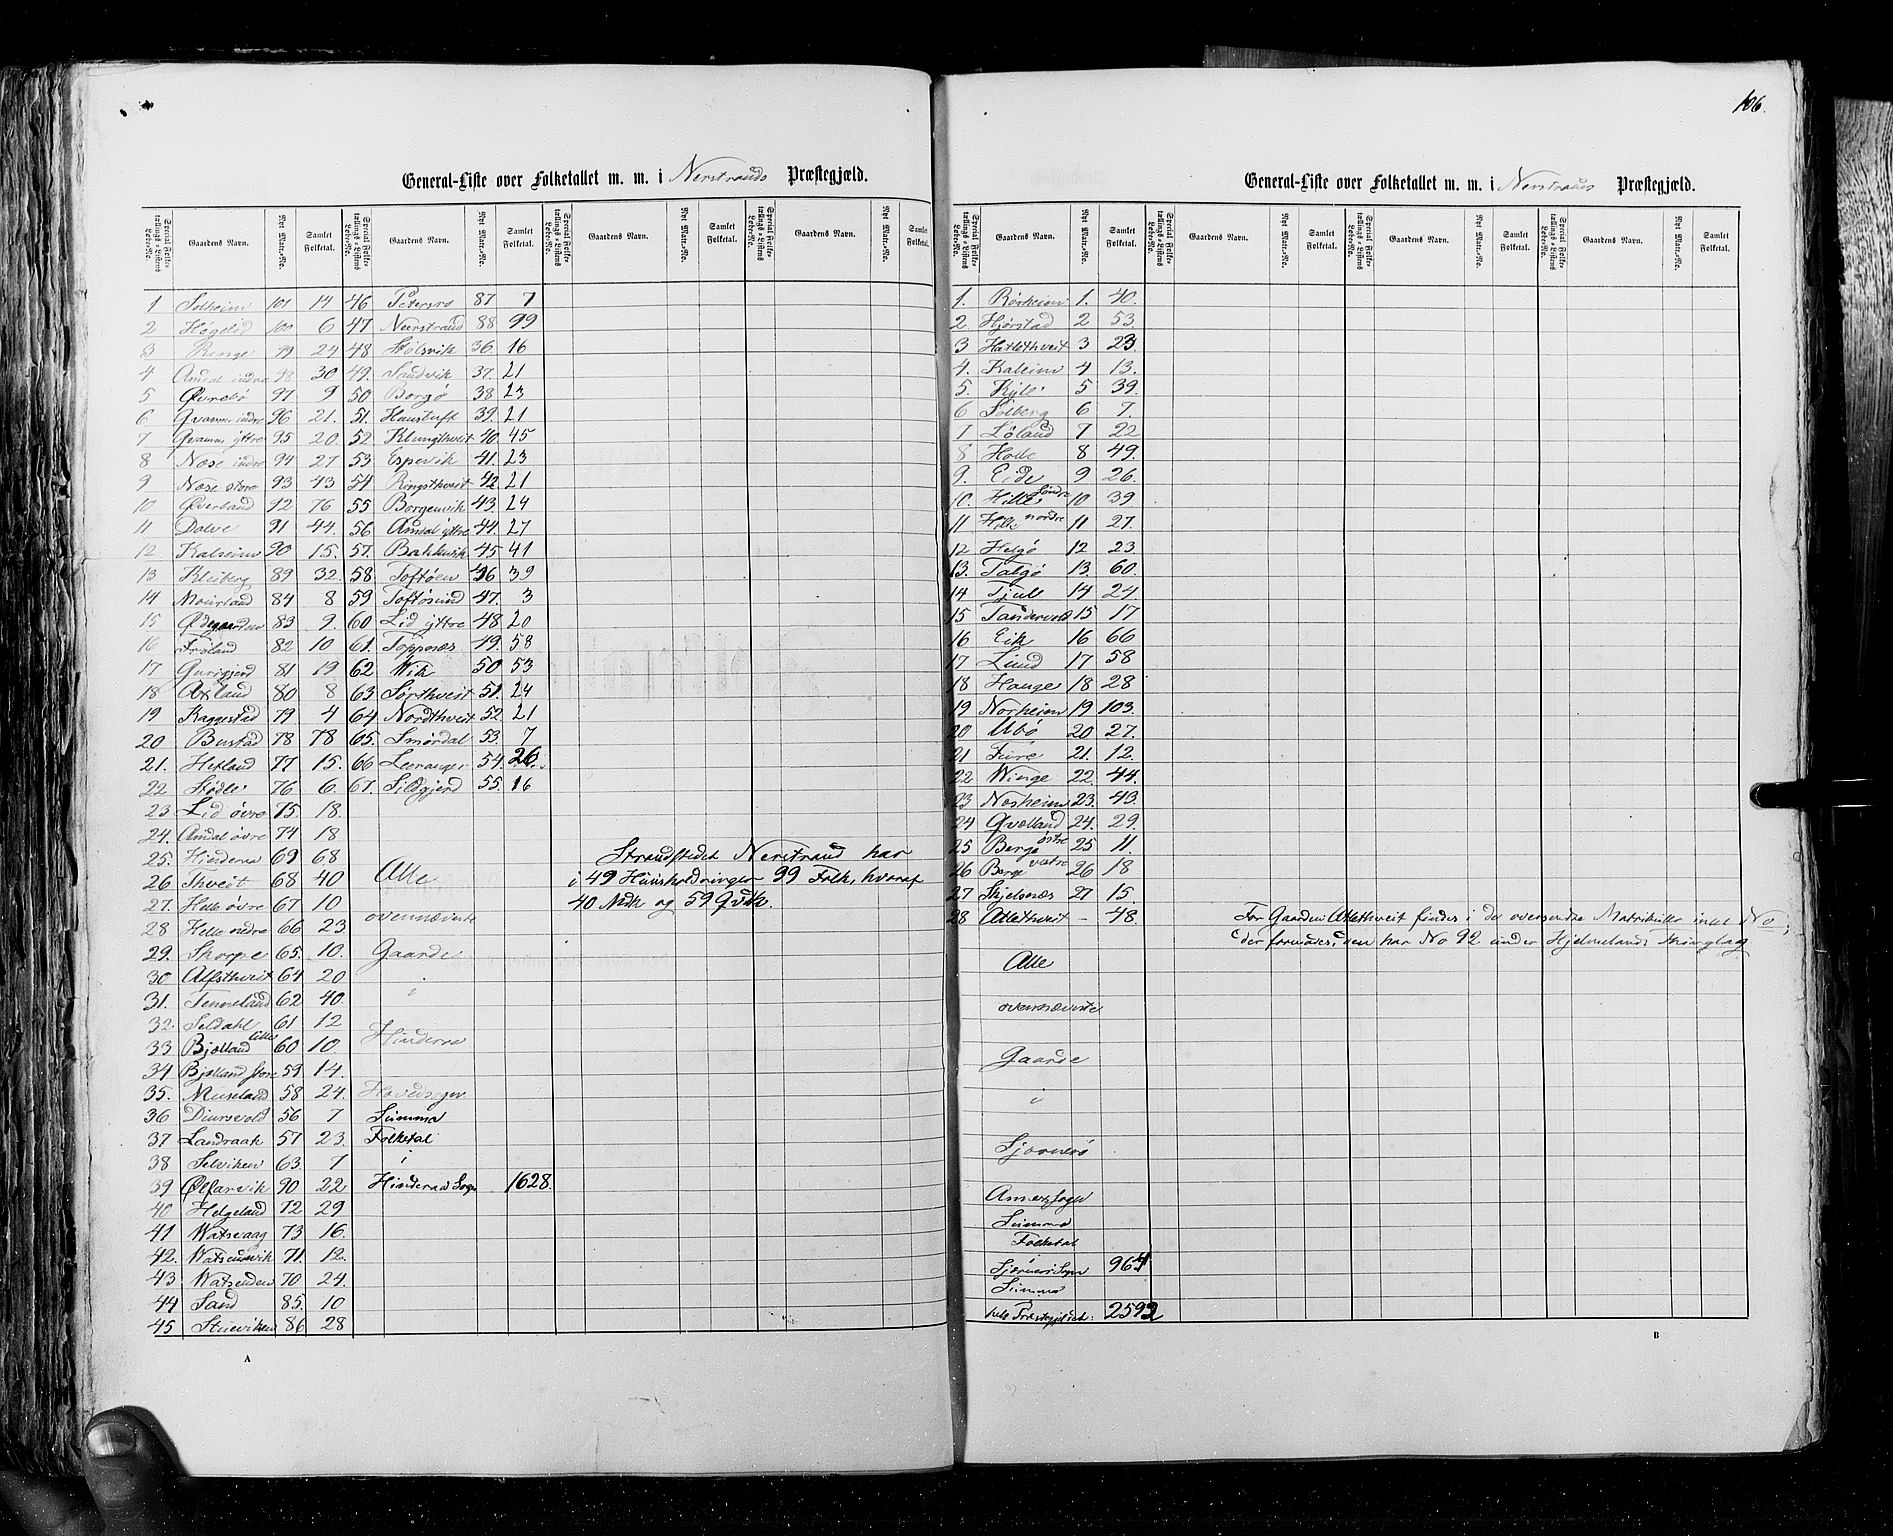 General-Liste over Folketallet m. m. i Nerstrands Præstegjæld.
Special Folketællings-Listens Løbe-No. Gaardens Navn. Nyt Matr.-No. Samlet Folketal. Special Folketællings-Listens Løbe-No. Gaardens Navn. Nyt Matr.-No. Samlet Folketal. Special Folketællings-Listens Løbe-No. Gaardens Navn. Nyt Matr.-No. Samlet Folketal. Special Folketællings-Listens Løbe-No. Gaardens Navn. Nyt Matr.-No. Samlet Folketal.
1 Solheim 101 14 46 Petersro 87 7
2 Høgelid 100 6 47 Nerstrand 88 99
3 Ringe 99 24 48 Stølsvik 36 16
4 Amdal indre 98 30 49. Sandvik 37. 21
5 Øvrebø 97 9 50 Borgø 38 23
6 Qvamm indre 96 21. 51. 39. 21
7 Qvamm yttre 95 20 52 40. 45
8 Næse indre 94 27 53 Espevik 41. 23
9 Næse store 93 43 54 Ringsthveit 42 21
10 Øverland 92 76 55 Borgenvik 43. 24
11 Dalve 91 44. 56 Amdal yttre 44. 27
12 Kalseim 90 15. 57. Bakkevik 45 41
13 Kleiberg 89 32. 58 Toftøen 46 39
14 84 8 59 Toftøsund 47. 3
15 Ødegaarden 83 9. 60 Lid yttre 48 20
16 Frøland 82 10 61. Toppenæs 49. 58
17 81 19 62 Wik 50 53
18 Axland 80 8 63 Sørthveit 51. 24
19 Kaggestad 79 4 64 Nordthveit 52. 21
20 Bustad 78 78 65. Smørdal 53. 7
21. Hetland 77 15. 66 Leeranger 54. 26.
22 Stødle 76 6. 67. Sildgjerd 55. 16
23 Lid øvre 75. 18.
24. Amdal øvre 74 18
25. Hinderaa 69 68
26 Thveit 68 40
27. Helle øvre 67 10
28 Helle nedre 66 23
29. Skorpe 65. 10.
30 Alfsthveit 64 20
31. Tenneland 62 40.
32. Seldahl 61 12
33. Bjelland lille 60 10.
34 Bjelland store 59 14.
35. Museland 58 24.
36 Diursvold 56 7
37 Landraak 57 23.
38 Selviken 63. 7
39 Ølfarvik 90 22
40 Helgeland 72 29
41 Watsvaag 73 16.
42. 71. 12.
43 Watsenden 70 24.
44 Sand 85. 10
45 Stueviken 86 28
Alle
ovennævnte
Gaarde
i
Hinderaa
Hovedsogn
Summa
Folketal
i
Hinderaa Sogn 1628.
Strandstedet Nerstrand har
i 49 Huusholdninger 99 Folk, hvoraf
40 Mdk og 59 Qvdk.
A
106.
General-Liste over Folketallet m. m. i Nerstrands Præstegjæld.
Special Folketællings-Listens Løbe-No. Gaardens Navn. Nyt Matr.-No. Samlet Folketal. Special Folketællings-Listens Løbe-No. Gaardens Navn. Nyt Matr.-No. Samlet Folketal. Special Folketællings-Listens Løbe-No. Gaardens Navn. Nyt Matr.-No. Samlet Folketal. Special Folketællings-Listens Løbe-No. Gaardens Navn. Nyt Matr.-No. Samlet Folketal.
1. Rørheim 1. 40.
2. Hjørstad 2 53.
3 Hatlethveit 3 23.
4. Kaleim 4 13.
5. Kyle 5 39.
6 Solberg 6 7.
7 Løland 7 22
8 Holle 8 49.
9. Eide 9 26.
10. Hille søndre 10 39
11 Hille nordre 11 27.
12 Helgø 12 23.
13. Talgø 13. 60.
14 Tjul 14 24.
15 Tandervold 15 17
16 Eik 16 66
17 Lund 17 58
18 Hauge 18 28
19 Norheim 19 103.
20 Ubø 20 27.
21 Fure 21. 12.
22 Winge 22 44.
23 Nosheim 23. 43.
24 Qvælland 24. 29.
25 Berge østre 25 11.
26 Berge vestre 26 18
27 Skjelsnæs 27 15.
28 Atlethveit – 48.
Alle
ovennævnte
Gaarde
i
Sjørnerø
Annexsogn
Summa
Folketal
Sjørnerø Sogn 964
Summa
hele Præstegjeldet: 2592
For Gaarden Atlethveit findes i de oversendte Matrikuler intet No;
der formodes, den har No 92 under Hjelmelands Thinglag
B